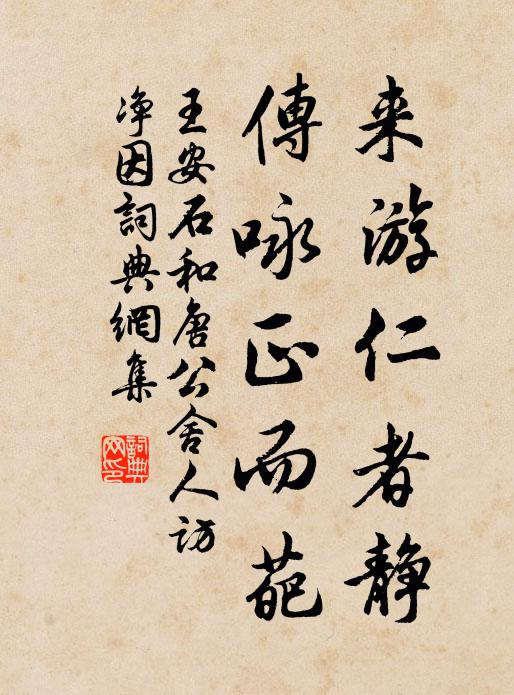 来游仁者静
傳咏正而葩
王安石和唐公舍人访
净因詞典網集
詞典网印